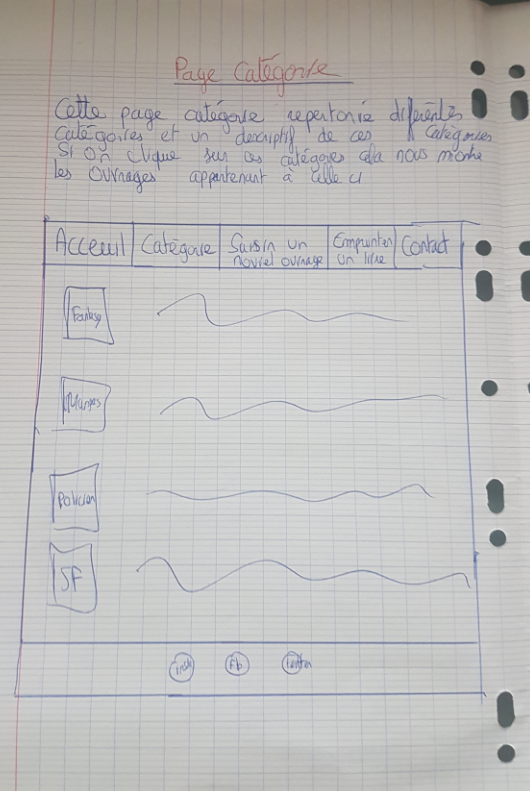 Page Catégorie
Cette page catégorie repertorie diférentes
catégories et un descriptif de ces Catégories
Si on clique sur ces catégories cela nous montre
les ouvrages appartenant à celle ci
Acceuil Catégorie Saisir un nouvel ouvrage Emprunter un livre Contact
Fantasy
Mangas
Policier
SF
insta Fb twitter